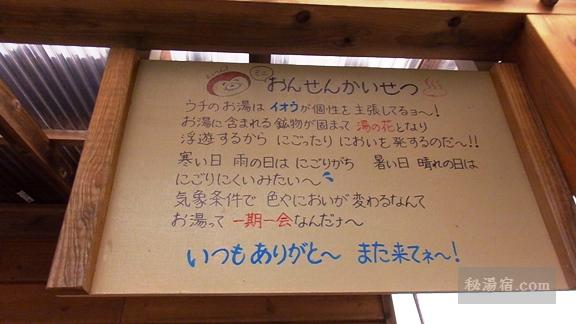 ミニ おんせんかいせつ
ウチのお湯は イオウが個性を主張してるョ～!
お湯に含まれる鉱物が固まって 湯の花となり
浮遊するから にごったり においを発するのだ～!!
寒い日 雨の日は にごりがち 暑い日 晴れの日は
にごりにくいみたい～
気象条件で 色やにおいが変わるなんて
お湯って 一期一会なんだナ～
いつもありがと～ また来てネ～!
秘湯宿.com